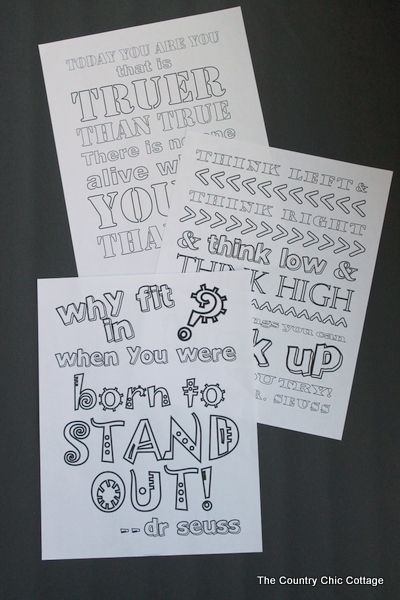 TODAY YOU ARE YOU
that is
TRUER
THAN TRUE
There is no one
alive
YOU
THA
THINK LEFT &
<<<<<<<<<<
THINK RIGHT
>>>>>>>>>>
& think low &
THINK HIGH
you can
k up
TRY!
SEUSS
why fit
in ?
when you were
born to
STAND
OUT!
-- dr seuss
The Country Chic Cottage